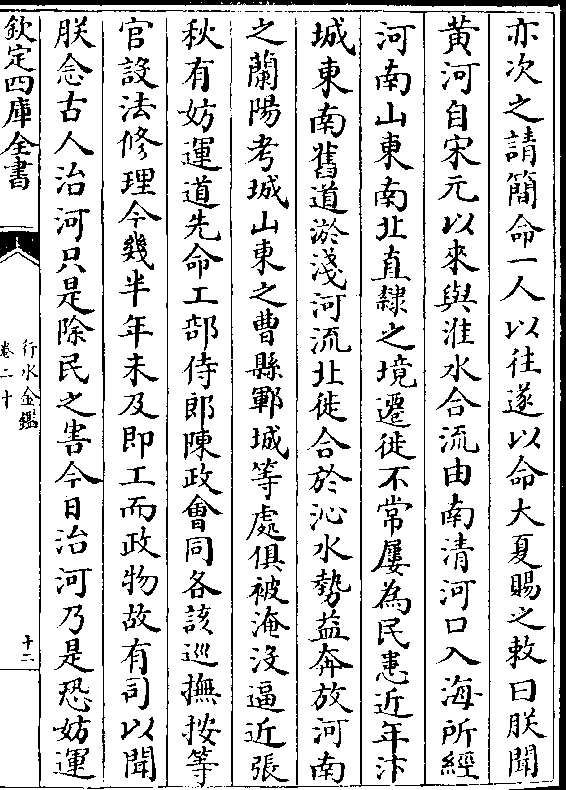 亦次之請簡命一人以往遂以命大夏賜之敕曰朕聞
黄河自宋元以來與淮水合流由南清河口入海所經
河南山東南北直隷之境遷徙不常屢為民患近年汴
城東南舊道淤淺河流北徙合於沁水勢益奔放河南
之蘭陽考城山東之曹縣鄆城等處俱被淹没逼近張
秋有妨運道先命工部侍郎陳政會同各該巡撫按等
官設法修理今幾半年未及即工而政物故有司以聞
朕念古人治河只是除民之害今日治河乃是恐妨運
欽定四庫全書
行水金鑑
卷二十
十二